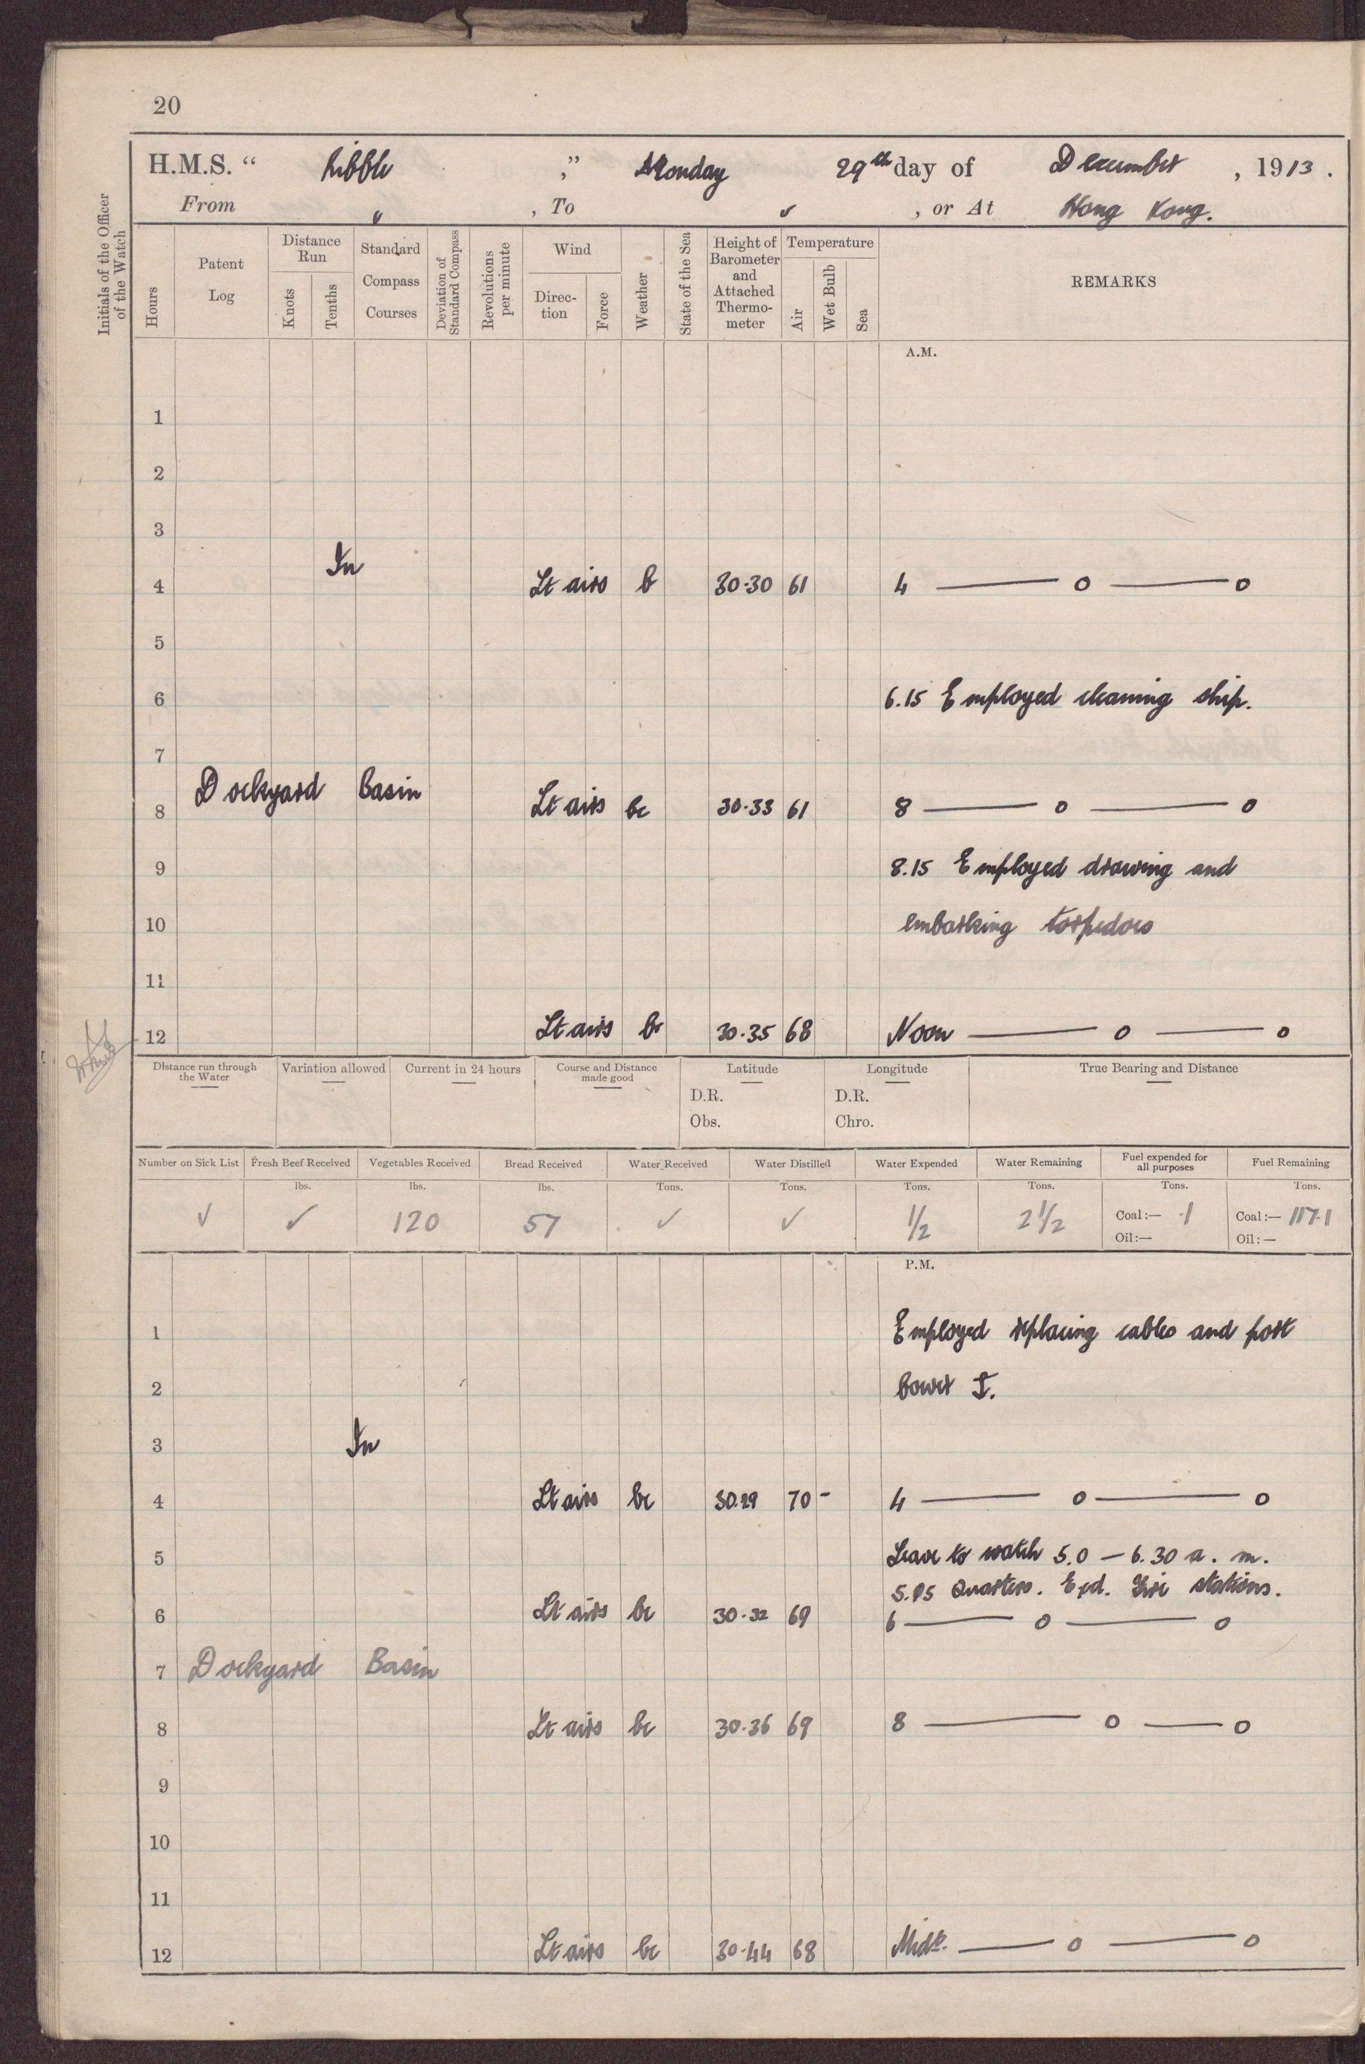 20
H.M.S. “ Ribble ,” Monday 29th day of December , 1913 .
From , To , or At Hong Kong.
Initials of the Officer of the Watch
Hours
Patent Log
Distance Run
Knots
Tenths
Standard Compass Courses
Deviation of Standard Compass
Revolutions per minute
Wind
Direc-tion
Force
Weather
State of the Sea
Height of Barometer and Attached Thermo-meter
Temperature
Air
Wet Bulb
Sea
REMARKS
A.M.
1
2
3
In
4 Lt airs b 30·30 61 4 — o — o
5
6 6.15 Employed cleaning ship.
7
Dockyard Basin
8 Lt airs bc 30·33 61 8 — o — o
9 8.15 Employed drawing and
10 embarking torpedoes
11
12 Lt airs bc 30·35 68 Noon — o — o
Distance run through the Water
Variation allowed
Current in 24 hours
Course and Distance made good
Latitude
D.R.
Obs.
Longitude
D.R.
Chro.
True Bearing and Distance
Number on Sick List Fresh Beef Received Vegetables Received Bread Received Water Received Water Distilled Water Expended Water Remaining Fuel expended for all purposes Fuel Remaining
lbs. lbs. lbs. Tons. Tons. Tons. Tons. Tons. Tons.
✓ ✓ 120 57 ✓ ✓ 1/2 2 1/2 Coal :— ·1 Coal :— 117·1
Oil :— Oil :—
P.M.
1 Employed replacing cables and port
2 bower ⚓.
3 In
4 Lt airs bc 30.29 70 - 4 — o — o
5 Leave to watch 5.0 — 6.30 a. m.
5.05 Quarters. Exd. Fire stations.
6 Lt airs bc 30·32 69 6 — o — o
7 Dockyard Basin
8 Lt airs bc 30·36 69 8 — o — o
9
10
11
12 Lt airs bc 30·44 68 Midt. — o — o